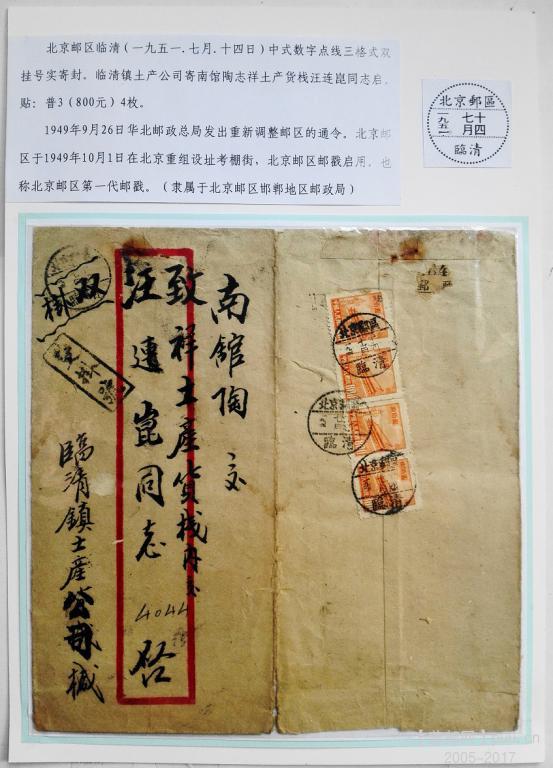 北京邮区临清(一九五一.七月.十四日)中式数字点线三格式双
挂号实寄封。临清镇土产公司寄南馆陶志祥土产货栈汪连崑同志启。
贴:普3(800元)4枚。
1949年9月26日华北邮政总局发出重新调整邮区的通令。北京邮
区于1949年10月1日在北京重组设址考棚街,北京邮区邮戳启用,也
称北京邮区第一代邮戳。(隶属于北京邮区邯郸地区邮政局)
北京郵區
一九五一
七月
十四
臨清
双掛
南館陶 交
致祥土產貨栈再交
汪連崑同志
4044
啓
臨清鎮土產公司緘
北京郵區
臨清
北京郵區
臨清
北京郵區
2005-2017